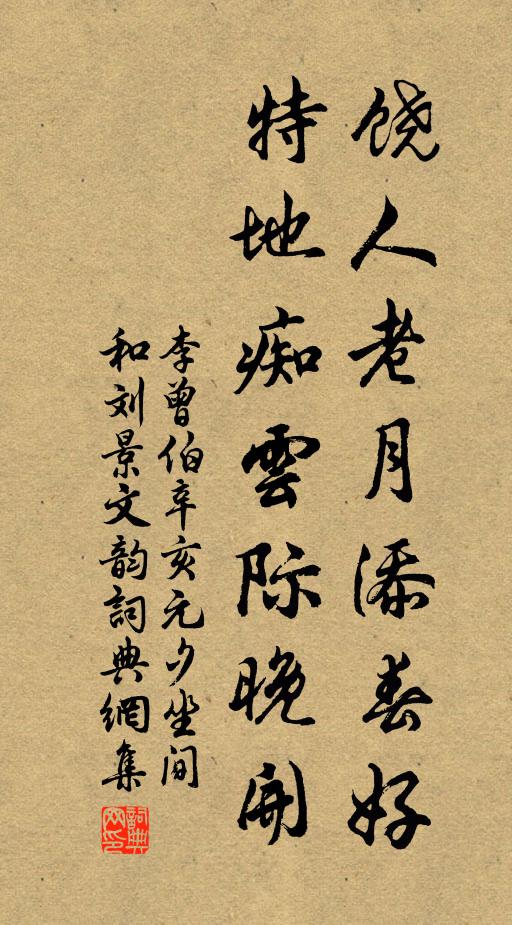 饶人老月添春好
特地痴雲际晚开
李曾伯辛亥元夕坐间
和刘景文韵詞典網集
詞典网印